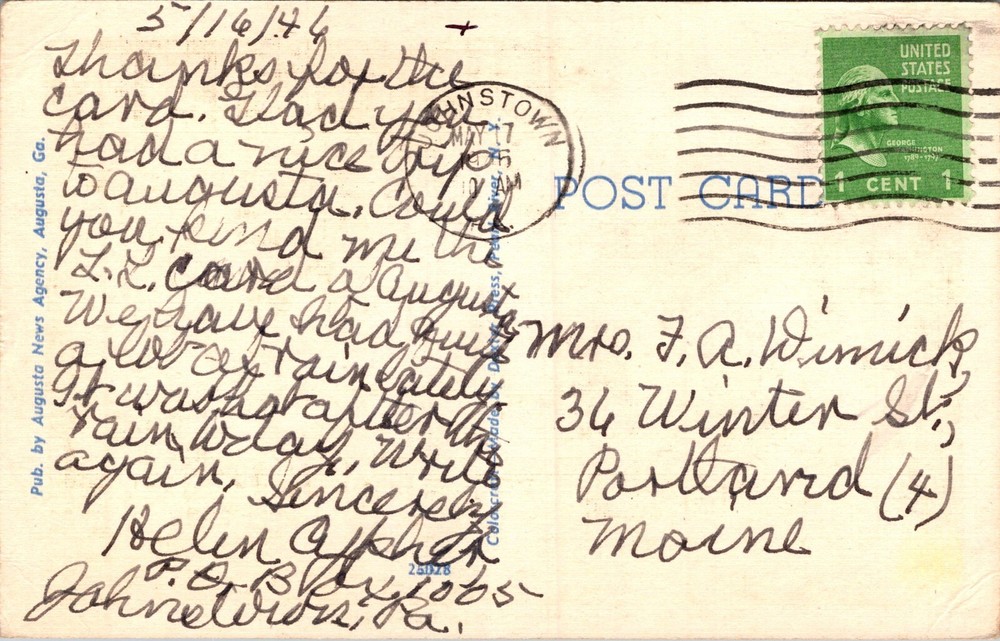 5/16/46
Thanks for the
card. Had you
had a nice trip
to augusta. Could
you send me the
L.L. card of augusta
We have had quite
a lot of rain lately
It was hot after the
rain today. Write
again. Sincerely
Helen
P.O. Box 1065
Johnstown, Pa.
Pub. by Augusta News Agency, Augusta, Ga.
JOHNSTOWN
MAY 17
10 AM
POST CARD
UNITED
STATES
POSTAGE
GEORGE
WASHINGTON
1789-1797
1 CENT 1
Mrs. F. A. Wimick,
36 Winter St.,
Portland (4)
Maine
25028